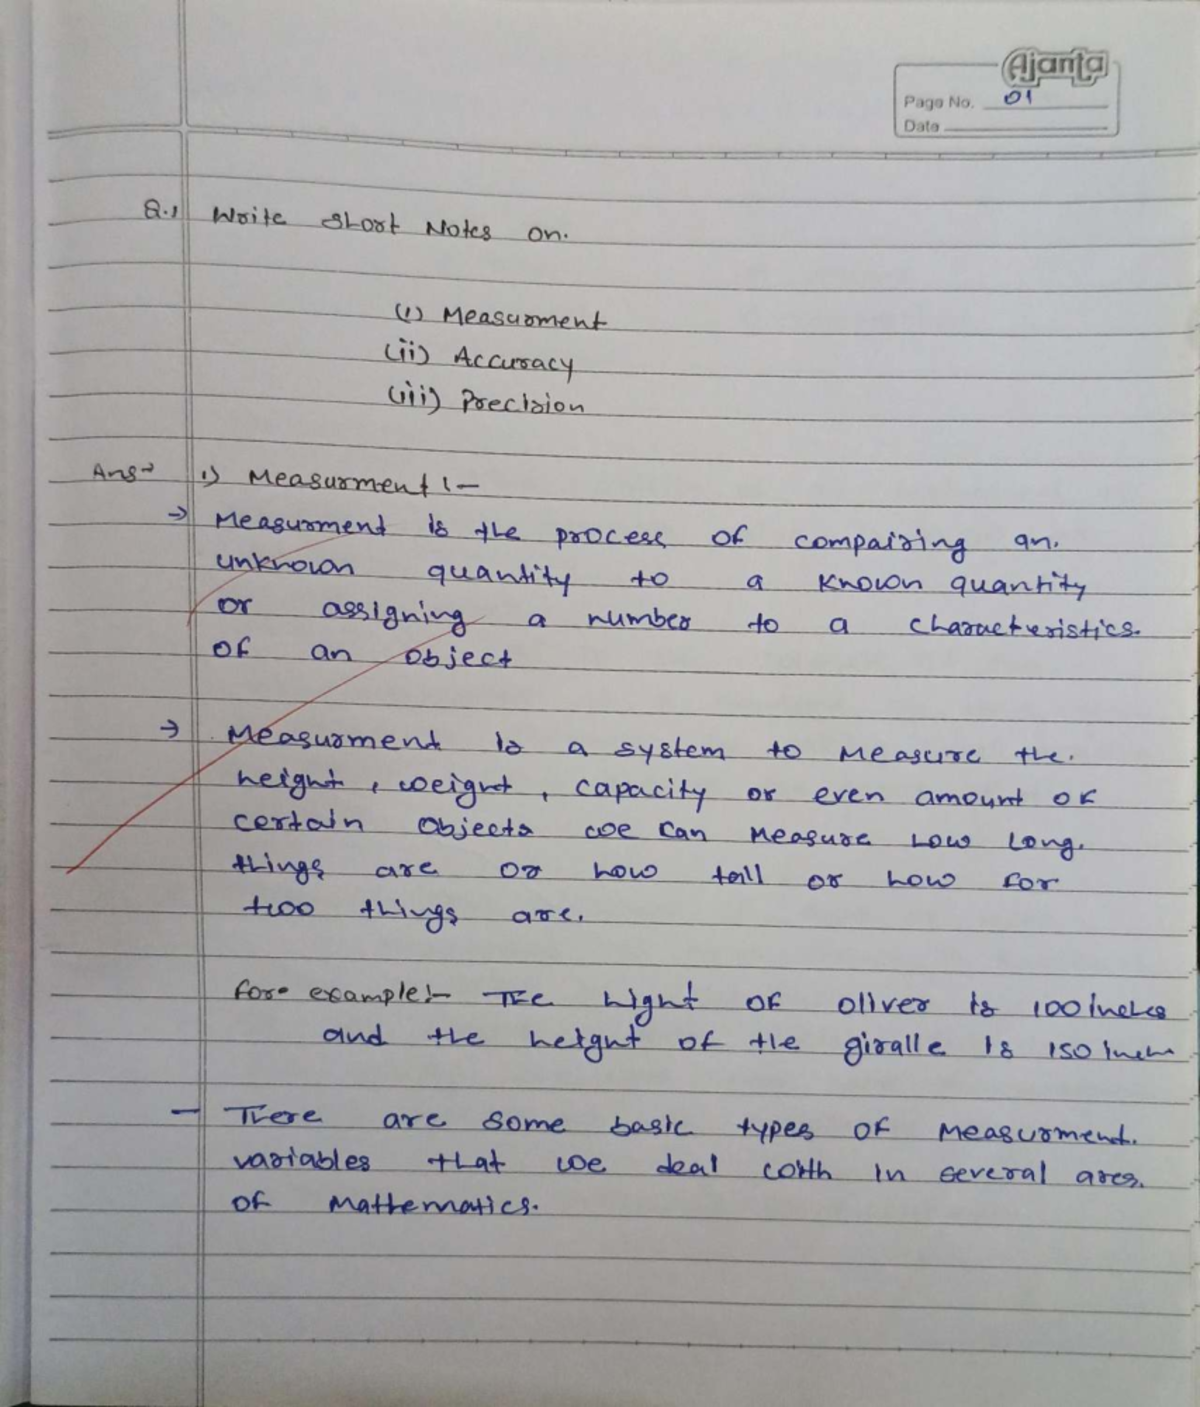 Ajanta
Page No. 01
Date
Q.1 Write Short Notes on.
(i) Measurment
(ii) Accuracy
(iii) Precision
Ans→ 1) Measurment :-
→ Measurment is the process of compairing an.
unknown quantity to a known quantity
or assigning a number to a characteristics.
of an object
→ Measurment is a system to Measure the.
height, weight, capacity or even amount of
certain objects we can Measure how long.
things are or how tall or how for
two things are.
for example:- The hight of oliver is 100 inches
and the height of the giralle is 150 inch
- There are some basic types of Measurment.
variables that we deal with in several ares.
of Mathematics.